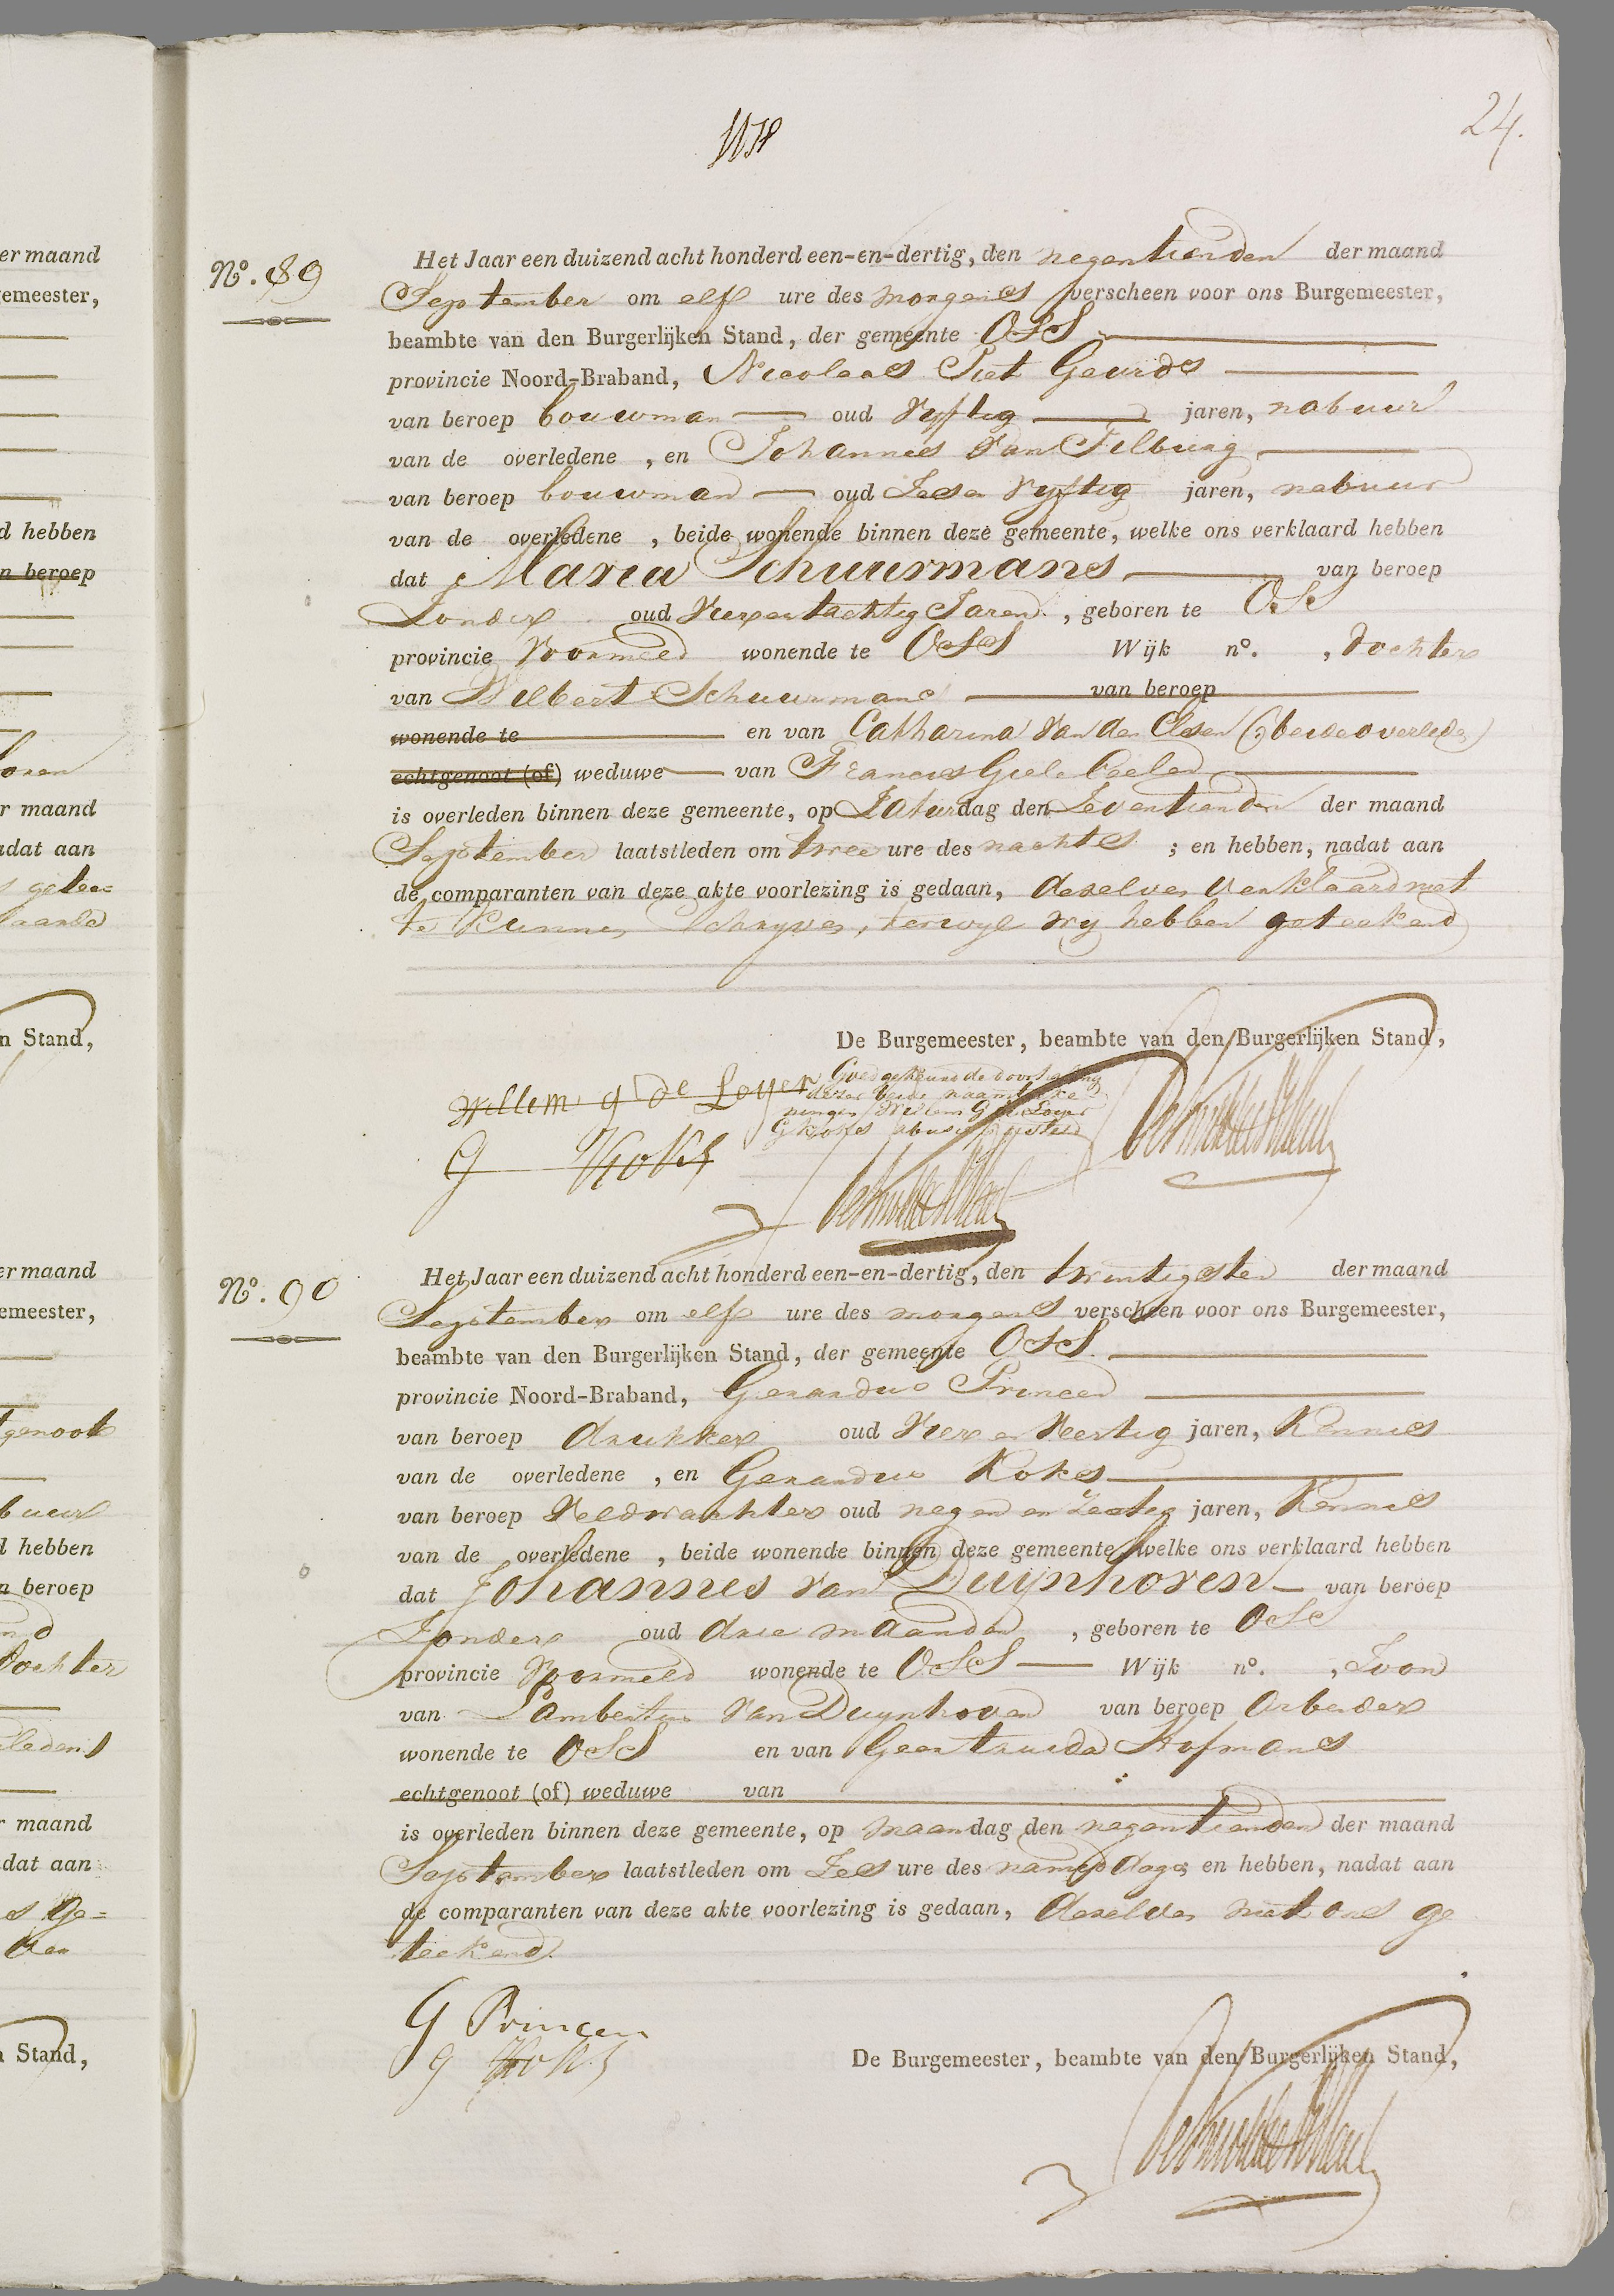 24.
er maand
emeester,
d hebben
n beroep
r maand
dat aan
n Stand,
er maand
emeester,
genoot
buur
d hebben
n beroep
dochter
r maand
dat aan
n Stand,
N°. 89
Het Jaar een duizend acht honderd een-en-dertig, den negentienden der maand
September om elf ure des morgens verscheen voor ons Burgemeester,
beambte van den Burgerlijken Stand, der gemeente Oss
provincie Noord-Braband, Nicolaas Piet Geurds
van beroep bouwman oud vyftig jaren, nabuur
van de overledene , en Johannes van Tilburg
van beroep bouwman oud Zes en vyftig jaren, nabuur
van de overledene , beide wonende binnen deze gemeente, welke ons verklaard hebben
dat Maria Schuurmans van beroep
Zonder oud vier en tachtig Jaren , geboren te Oss
provincie voormeld wonende te Oss Wijk n°. , dochter
van Wilbert Schuurmans van beroep
wonende te en van Catharina van den Elsen beide overleden
echtgenoot (of) weduwe van Francis Giele Ceelen
is overleden binnen deze gemeente, op Zaturdag den Zeventienden der maand
September laatstleden om twee ure des nachts ; en hebben, nadat aan
de comparanten van deze akte voorlezing is gedaan, dezelve verklaard niet
te kunnen Schryven, terwyl wy hebben geteekend
De Burgemeester, beambte van den Burgerlijken Stand,
Willem G de Loyer
Goedgekeurd de doorhaling
dezer beide naamteeke
ningen Willem G de Loyer
G Koks
G Koks
N°. 90
Het Jaar een duizend acht honderd een-en-dertig, den twintigsten der maand
September om elf ure des morgens verscheen voor ons Burgemeester,
beambte van den Burgerlijken Stand, der gemeente Oss
provincie Noord-Braband, Gerardus Princen
van beroep drukker oud Vier en Veertig jaren, Kennis
van de overledene , en Gerardus Koks
van beroep Veldwachter oud negen en Zestig jaren, Kennis
van de overledene , beide wonende binnen deze gemeente, welke ons verklaard hebben
dat Johannes van Duijnhoven van beroep
Zonder oud drie maanden , geboren te Oss
provincie voormeld wonende te Oss Wijk n°. , Zoon
van Lambertus van Duynhoven van beroep Arbeider
wonende te Oss en van Geertruida Hofmans
echtgenoot (of) weduwe van
is overleden binnen deze gemeente, op maandag den negentienden der maand
September laatstleden om Zes ure des namiddags en hebben, nadat aan
de comparanten van deze akte voorlezing is gedaan, dezelve met ons ge
teekend.
G Princen
G Koks
De Burgemeester, beambte van den Burgerlijken Stand,